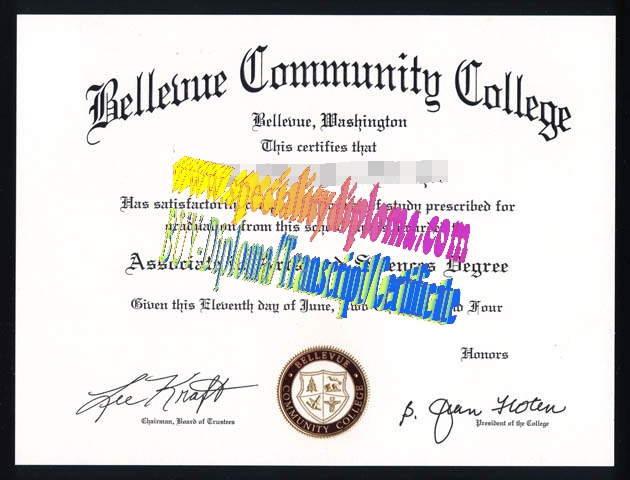 Bellevue Community College
Bellevue, Washington
This certifies that
www.specialitydiploma.com
Has satisfactorily of study prescribed for
graduation from this
BUY:Diploma/Transcript/Certificate
Associate Degree
Given this Eleventh day of June, Four
Honors
BELLEVUE
COMMUNITY COLLEGE
Lee Kraft
Chairman, Board of Trustees
B. Jean Floten
President of the College